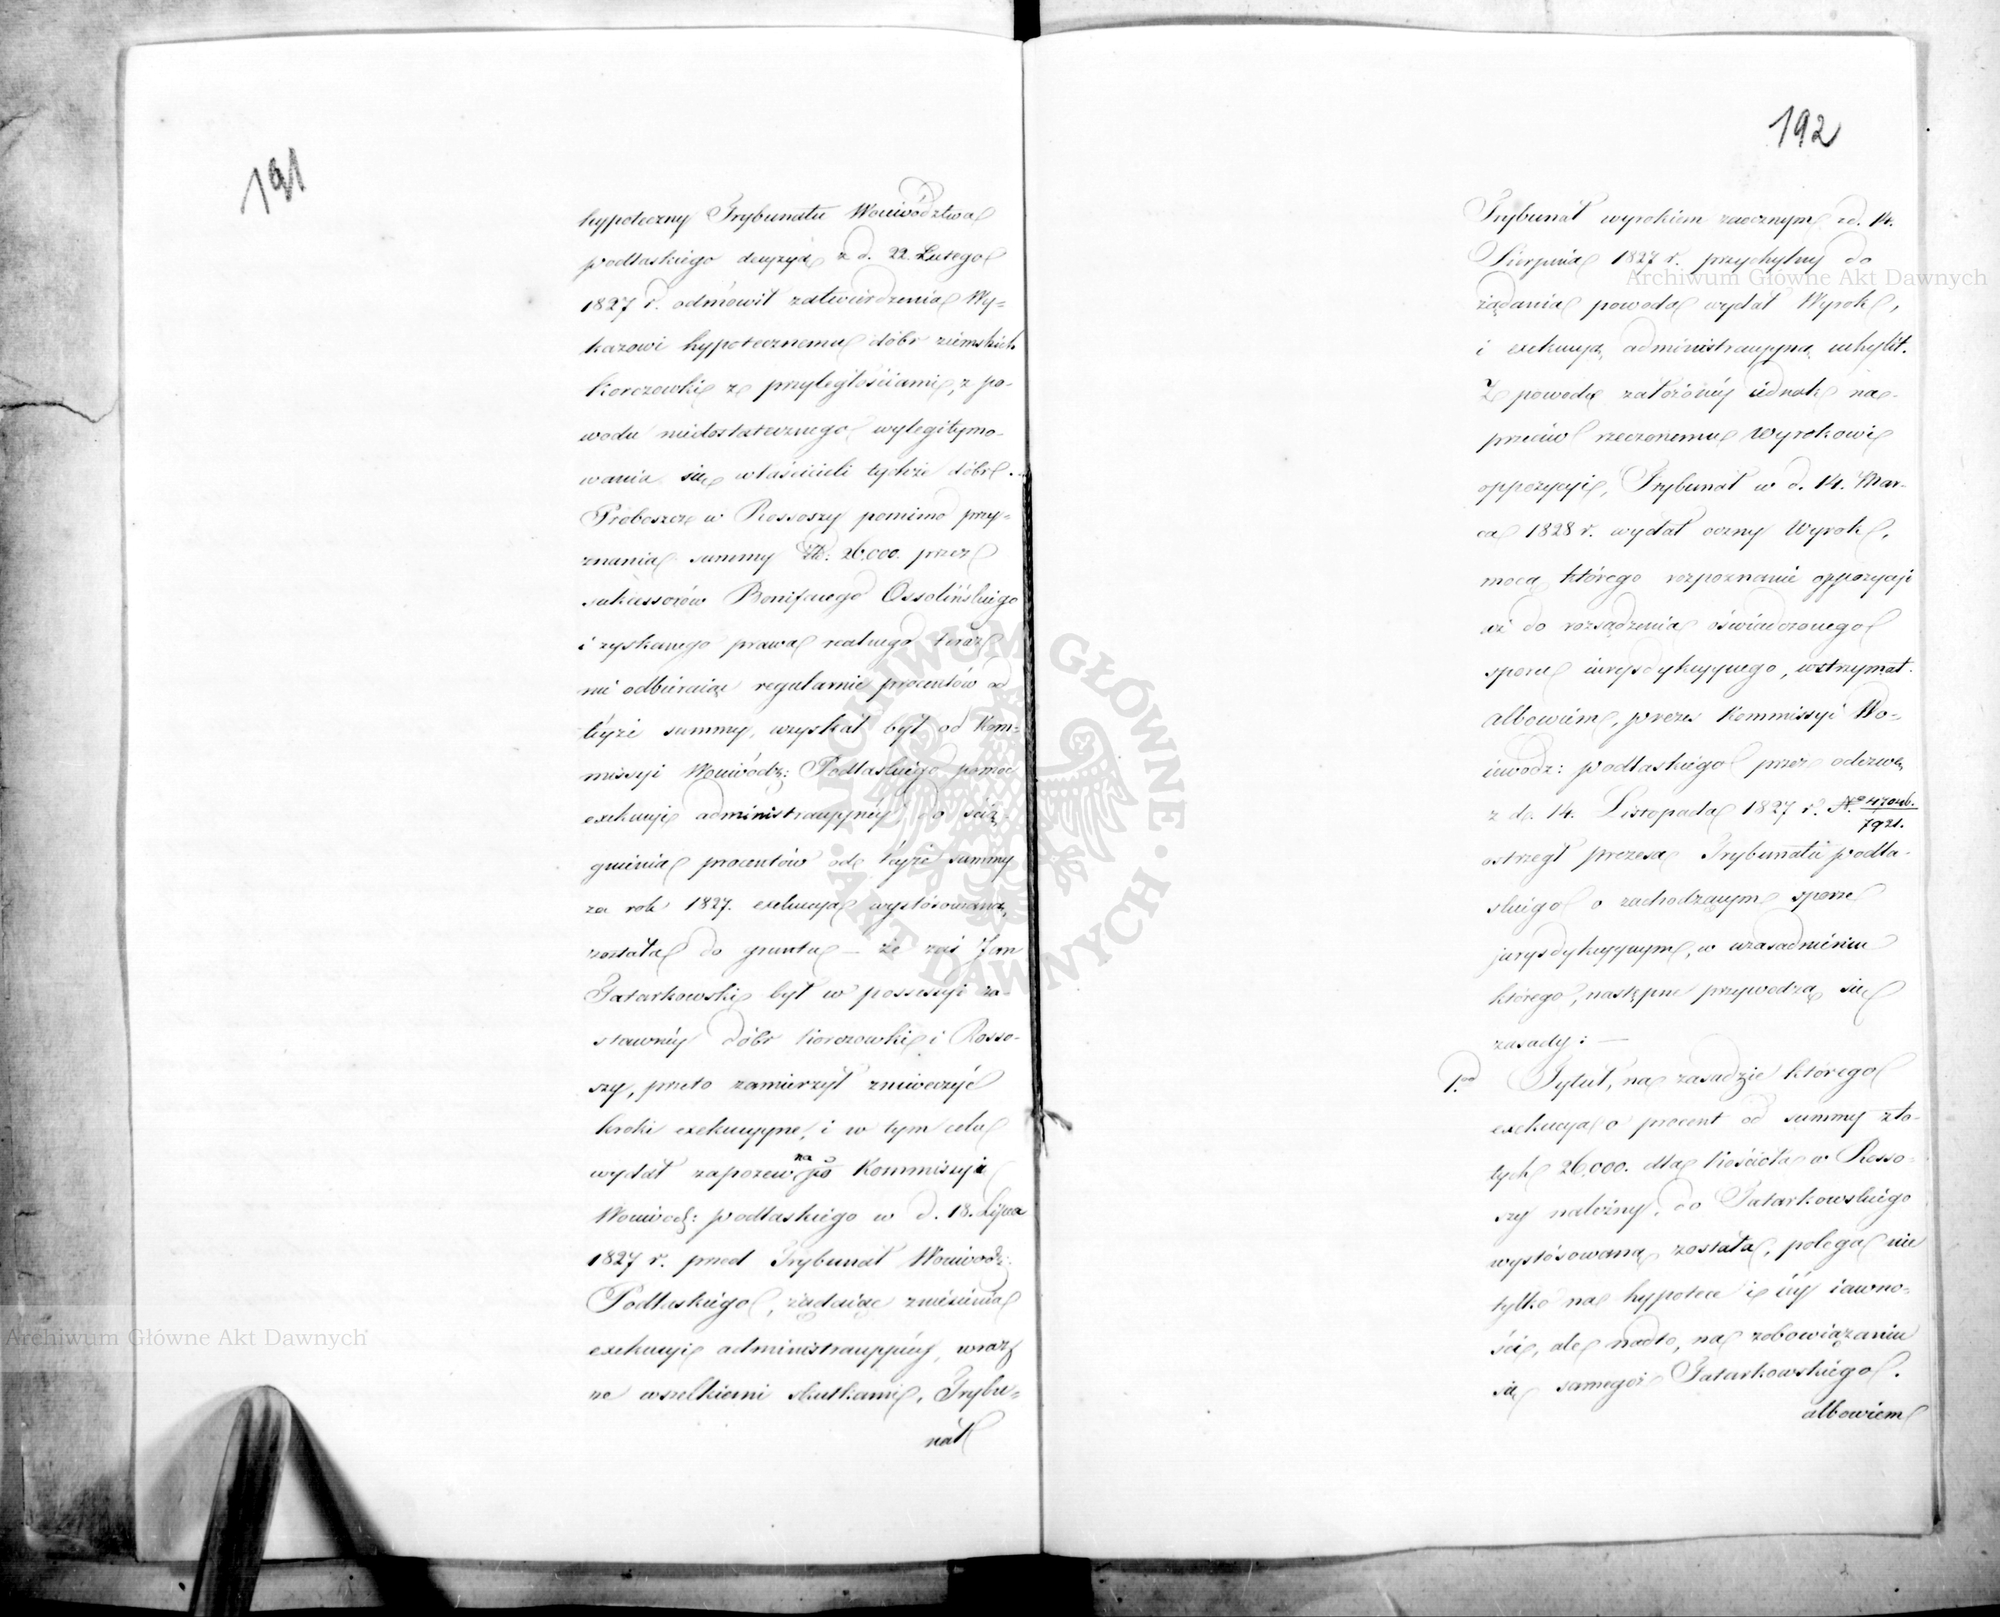 191
hypoteczny Trybunału Woiwództwa
podlaskiego decyzyą z d. 22 Lutego
1827 r. odmówił zatwierdzenia Wy-
kazowi hypotecznemu dóbr ziemskich
Korczowki z przyległościami, z po-
wodu niedostatecznego wylegitymo-
wania się właścicieli tychże dóbr.
Proboszcz w Rossoszy pomimo przy-
znania summy Zł: 26,000. przez
sukcessorów Bonifacego Ossolińskiego
i zyskanego prawa realnego teraz
nie odbieraiąc regularnie procentów od
téyże summy, uzyskał był od Kom-
missyi Woiewódz: Podlaskiego pomoc
exekucyi administracyjnéy, do ścią-
gnienia procentów od téyże summy
za rok 1827. exekucya wystosowaną
została do gruntu — że zaś Jan
Tatarkowski był w possessyi za-
stawnéy dóbr Korczowki i Rosso-
szy, przeto zamierzył zniweczyć
kroki exekucyjne, i w tym celu
wydał zapozew na po Kommissyi
Woiewodz: podlaskiego w d. 18. Lipca
1827 r. przed Trybunał Woiewodz:
Podlaskiego, żądaiąc zniesienia
exekucyi administracyjnéy, wraz
ze wszelkiemi skutkami, Trybu-
nał
192
Trybunał wyrokiem zaocznym z d. 14.
Sierpnia 1827 r. przychylny do
żądania powoda wydał Wyrok,
i exekucyą administracyjną uchylił.
Z powodu założonéy iednak na-
przeciw rzeczonemu Wyrokowi
oppozycyi, Trybunał w d. 14. Mar-
ca 1828 r. wydał oczny Wyrok,
mocą którego rozpoznanie oppozycyi
aż do rozsądzenia oświadczonego
sporu iurysdykcyjnego, wstrzymał.
albowiem, prezes Kommissyi Wo-
iewodz: podlaskiego przez odezwę
z d. 14. Listopada 1827 r. No 47046./7921.
ostrzegł prezesa Trybunału podla-
skiego o zachodzącym sporze
jurysdykcyjnym, w uzasadnieniu
którego, następne przywodzą się
zasady: —
1.od Tytuł, na zasadzie którego
exekucya o procent od summy zło-
tych 26,000. dla kościoła w Rosso-
szy należny, do Tatarkowskiego
wystosowaną została, polega nie
tylko na hypotece i iéy iawno-
ści, ale nadto, na zobowiązaniu
się samegoż Tatarkowskiego.
albowiem
Archiwum Główne Akt Dawnych
Archiwum Główne Akt Dawnych
ARCHIWUM GŁÓWNE · AKT DAWNYCH ·